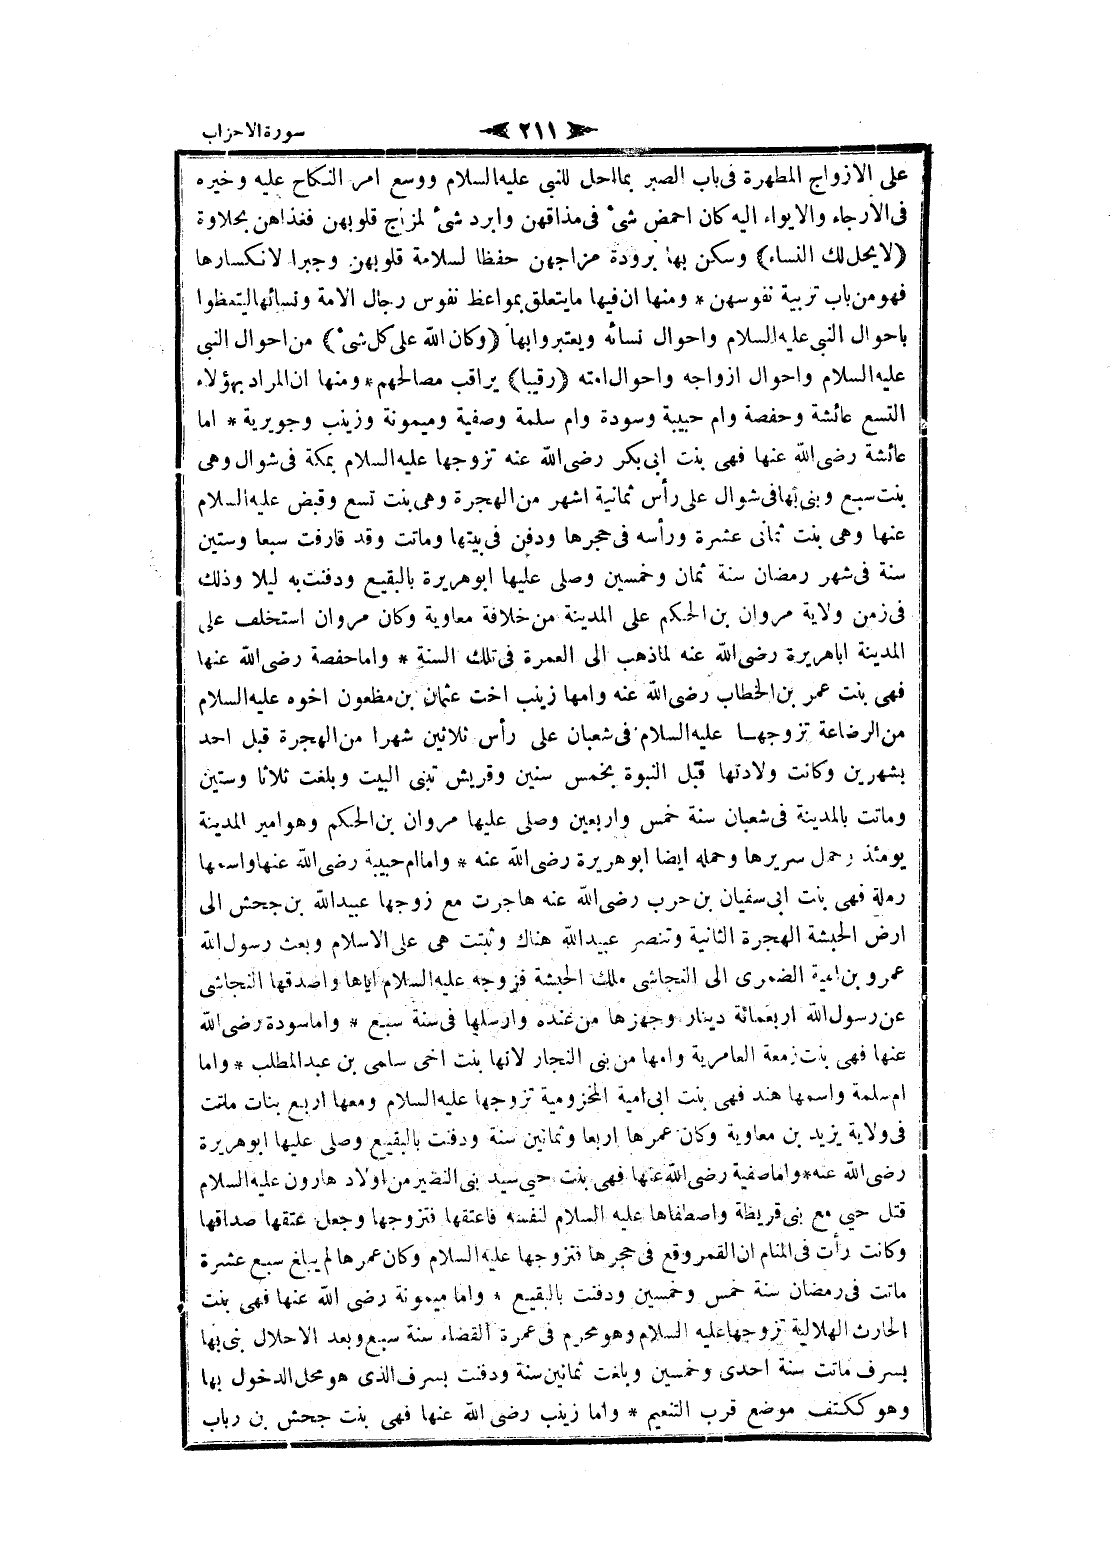 سورة الاحزاب
٢١١
على الازواج المطهرة فى باب الصبر بما احل للنبى عليه السلام ووسع امر النكاح عليه وخيره
فى الارجاء والايواء اليه كان احمض شئ فى مذاقهن وابرد شئ لمزاج قلوبهن فغذاهن بحلاوة
(لا يحل لك النساء) وسكن بها برودة مزاجهن حفظا لسلامة قلوبهن وجبرا لانكسارها
فهو من باب تربية نفوسهن * ومنها ان فيها ما يتعلق بمواعظ نفوس رجال الامة ونسائها ليتعظوا
باحوال النبى عليه السلام واحوال نسائه ويعتبروا بها (وكان الله على كل شئ) من احوال النبى
عليه السلام واحوال ازواجه واحوال امته (رقيبا) يراقب مصالحهم * ومنها ان المراد بهؤلاء
التسع عائشة وحفصة وام حبيبة وسودة وام سلمة وصفية وميمونة وزينب وجويرية * اما
عائشة رضى الله عنها فهى بنت ابى بكر رضى الله عنه تزوجها عليه السلام بمكة فى شوال وهى
بنت سبع وبنى بها فى شوال على رأس ثمانية اشهر من الهجرة وهى بنت تسع وقبض عليه السلام
عنها وهى بنت ثمانى عشرة ورأسه فى حجرها ودفن فى بيتها وماتت وقد قارفت سبعا وستين
سنة فى شهر رمضان سنة ثمان وخمسين وصلى عليها ابو هريرة بالبقيع ودفنت به ليلا وذلك
فى زمن ولاية مروان بن الحكم على المدينة من خلافة معاوية وكان مروان استخلف على
المدينة ابا هريرة رضى الله عنه لما ذهب الى العمرة فى تلك السنة * واما حفصة رضى الله عنها
فهى بنت عمر بن الخطاب رضى الله عنه وامها زينب اخت عثمان بن مظعون اخوه عليه السلام
من الرضاعة تزوجها عليه السلام فى شعبان على رأس ثلاثين شهرا من الهجرة قبل احد
بشهرين وكانت ولادتها قبل النبوة بخمس سنين وقريش تبنى البيت وبلغت ثلاثا وستين
وماتت بالمدينة فى شعبان سنة خمس واربعين وصلى عليها مروان بن الحكم وهو امير المدينة
يومئذ وحمل سريرها وحمله ايضا ابو هريرة رضى الله عنه * واما ام حبيبة رضى الله عنها واسمها
رملة فهى بنت ابى سفيان بن حرب رضى الله عنه هاجرت مع زوجها عبيد الله بن جحش الى
ارض الحبشة الهجرة الثانية وتنصر عبيد الله هناك وثبتت هى على الاسلام وبعث رسول الله
عمرو بن امية الضمرى الى النجاشى ملك الحبشة فزوجه عليه السلام اياها واصدقها النجاشى
عن رسول الله اربعمائة دينار وجهزها من عنده وارسلها فى سنة سبع * واما سودة رضى الله
عنها فهى بنت زمعة العامرية وامها من بنى النجار لانها بنت اخى سلمى بن عبد المطلب * واما
ام سلمة واسمها هند فهى بنت ابى امية المخزومية تزوجها عليه السلام ومعها اربع بنات ماتت
فى ولاية يزيد بن معاوية وكان عمرها اربعا وثمانين سنة ودفنت بالبقيع وصلى عليها ابو هريرة
رضى الله عنه * واما صفية رضى الله عنها فهى بنت حيى سيد بنى النضير من اولاد هارون عليه السلام
قتل حيى مع بنى قريظة واصطفاها عليه السلام لنفسه فاعتقها فتزوجها وجعل عتقها صداقها
وكانت رأت فى المنام ان القمر وقع فى حجرها فتزوجها عليه السلام وكان عمرها لم يبلغ سبع عشرة
ماتت فى رمضان سنة خمس وخمسين ودفنت بالبقيع * واما ميمونة رضى الله عنها فهى بنت
الحارث الهلالية تزوجها عليه السلام وهو محرم فى عمرة القضاء سنة سبع وبعد الاحلال بنى بها
بسرف ماتت سنة احدى وخمسين وبلغت ثمانين سنة ودفنت بسرف الذى هو محل الدخول بها
وهو ككتف موضع قرب التنعيم * واما زينب رضى الله عنها فهى بنت جحش بن رباب